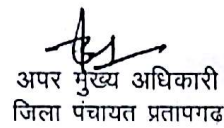 अपर मुख्य अधिकारी
जिला पंचायत प्रतापगढ़